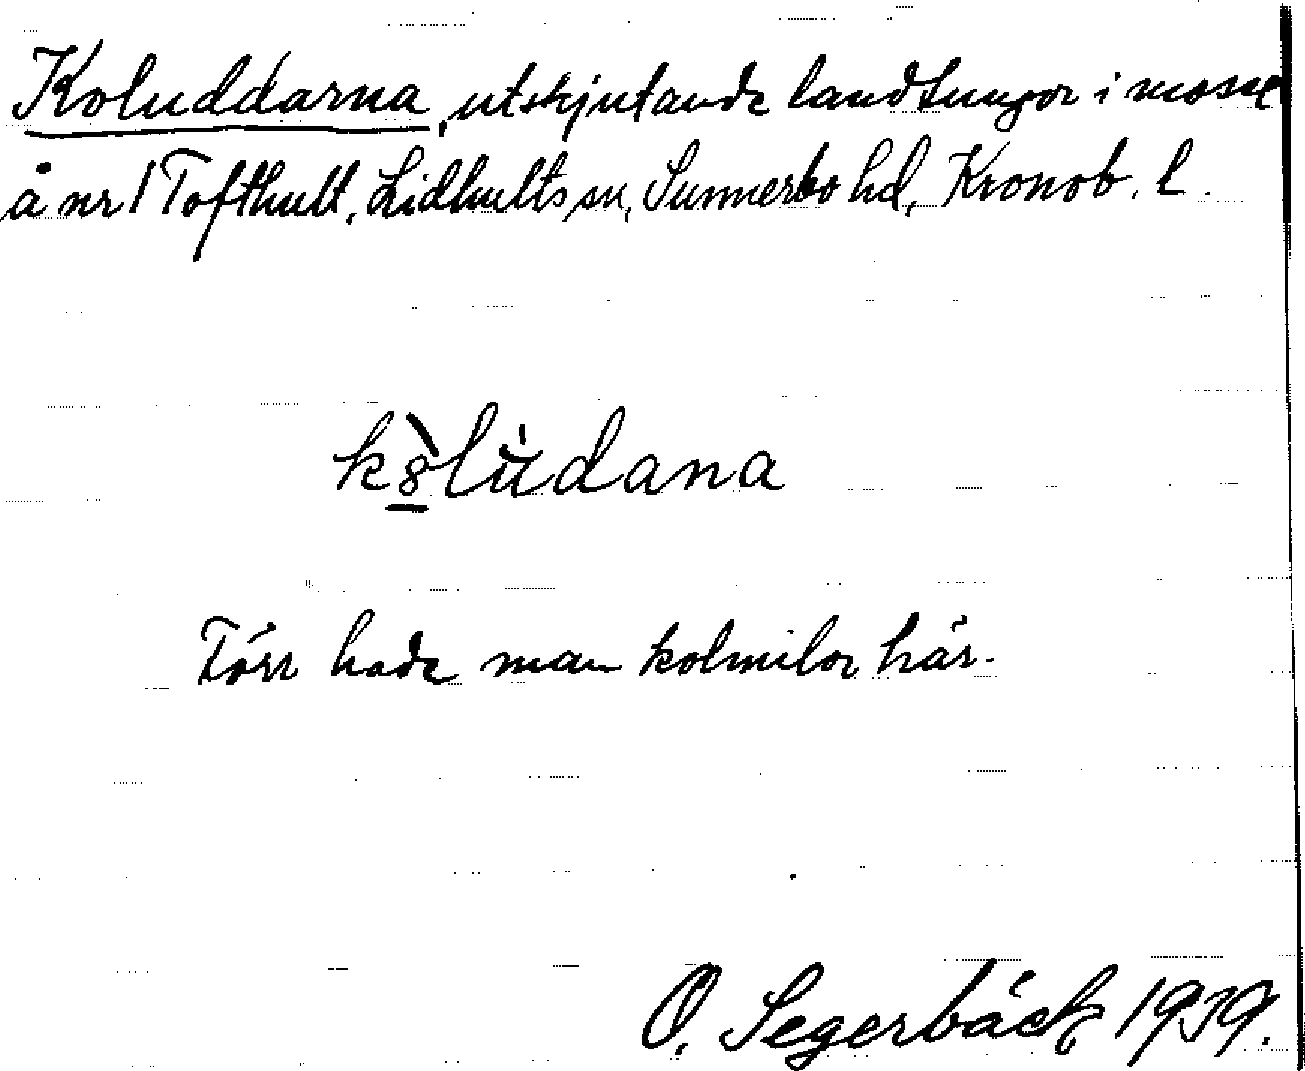 Koluddarna, utskjutande landtungor i mosse
å nr 1 Tofthult, Lidhults sn, Sunnerbo hd, Kronob. l.
k8̀lùdana
Förr hade man kolmilor här.
O. Segerbäck 1959.